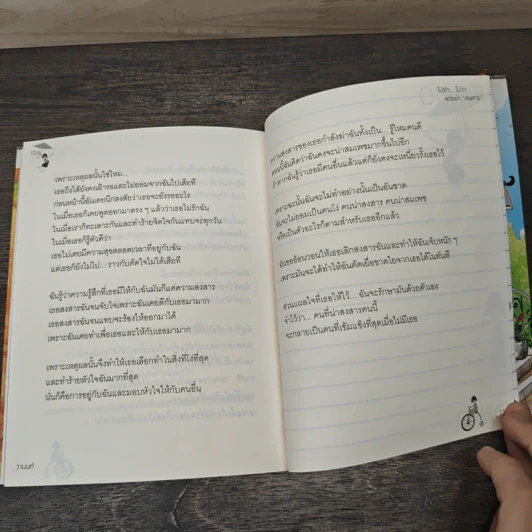 124
เพราะเหตุผลนั้นใช่ไหม...
เธอถึงได้ยังคงเฝ้ารอและไม่ยอมจากฉันไปเสียที
ก่อนหน้านี้ฉันเคยนึกสงสัยว่าเธอจะยังรออะไร
ในเมื่อเธอก็เคยพูดออกมาตรง ๆ แล้วว่าเธอไม่รักฉัน
ในเมื่อเราก็ทะเลาะกันและทำร้ายจิตใจกันแทบจะทุกวัน
ในเมื่อเธอก็รู้ตัวดีว่า
เธอไม่เคยมีความสุขตลอดเวลาที่อยู่กับฉัน
แต่เธอก็ยังไม่ไป... ราวกับตัดใจไม่ได้เสียที
ฉันรู้ว่าความรู้สึกที่เธอมีให้กับฉันมันก็แค่ความสงสาร
เธอสงสารฉันจนจับใจเพราะฉันเคยดีกับเธอมามาก
เธอสงสารฉันจนแทบจะร้องไห้ออกมาได้
เพราะฉันเคยทำเพื่อเธอและให้กับเธอมามาก
เพราะเหตุผลนั้นจึงทำให้เธอเลือกทำในสิ่งที่โง่ที่สุด
และทำร้ายหัวใจฉันมากที่สุด
นั่นก็คือการอยู่กับฉันและมอบหัวใจให้กับคนอื่น
วานนท์
ไม่รัก... ไม่ว่า
ความสงสารของเธอกำลังฆ่าฉันทั้งเป็น... รู้ไหมคนดี
ตอนนี้ฉันคิดว่าฉันคงจะน่าสมเพชมากขึ้นไปอีก
ถ้าหากฉันรู้ว่าเธอมีคนอื่นแล้วแต่ก็ยังคงจะเหนี่ยวรั้งเธอไว้
เพราะฉะนั้นฉันจะไม่ทำอย่างนั้นเป็นอันขาด
ฉันจะไม่ยอมเป็นคนโง่ คนน่าสงสาร คนน่าสมเพช
หรือเป็นตัวอะไรก็ตามสำหรับเธออีกแล้ว
ฉันขออ้อนวอนให้เธอเลิกสงสารฉันและทำให้ฉันเจ็บหนัก ๆ
เพราะมันจะได้ทำให้ฉันตัดเยื่อขาดใยจากเธอได้ในทันที
ส่วนแผลใจที่เธอให้ไว้... ฉันจะรักษามันด้วยตัวเอง
จำไว้ว่า... คนที่น่าสงสารคนนี้
จะกลายเป็นคนที่เข้มแข็งที่สุดเมื่อไม่มีเธอ